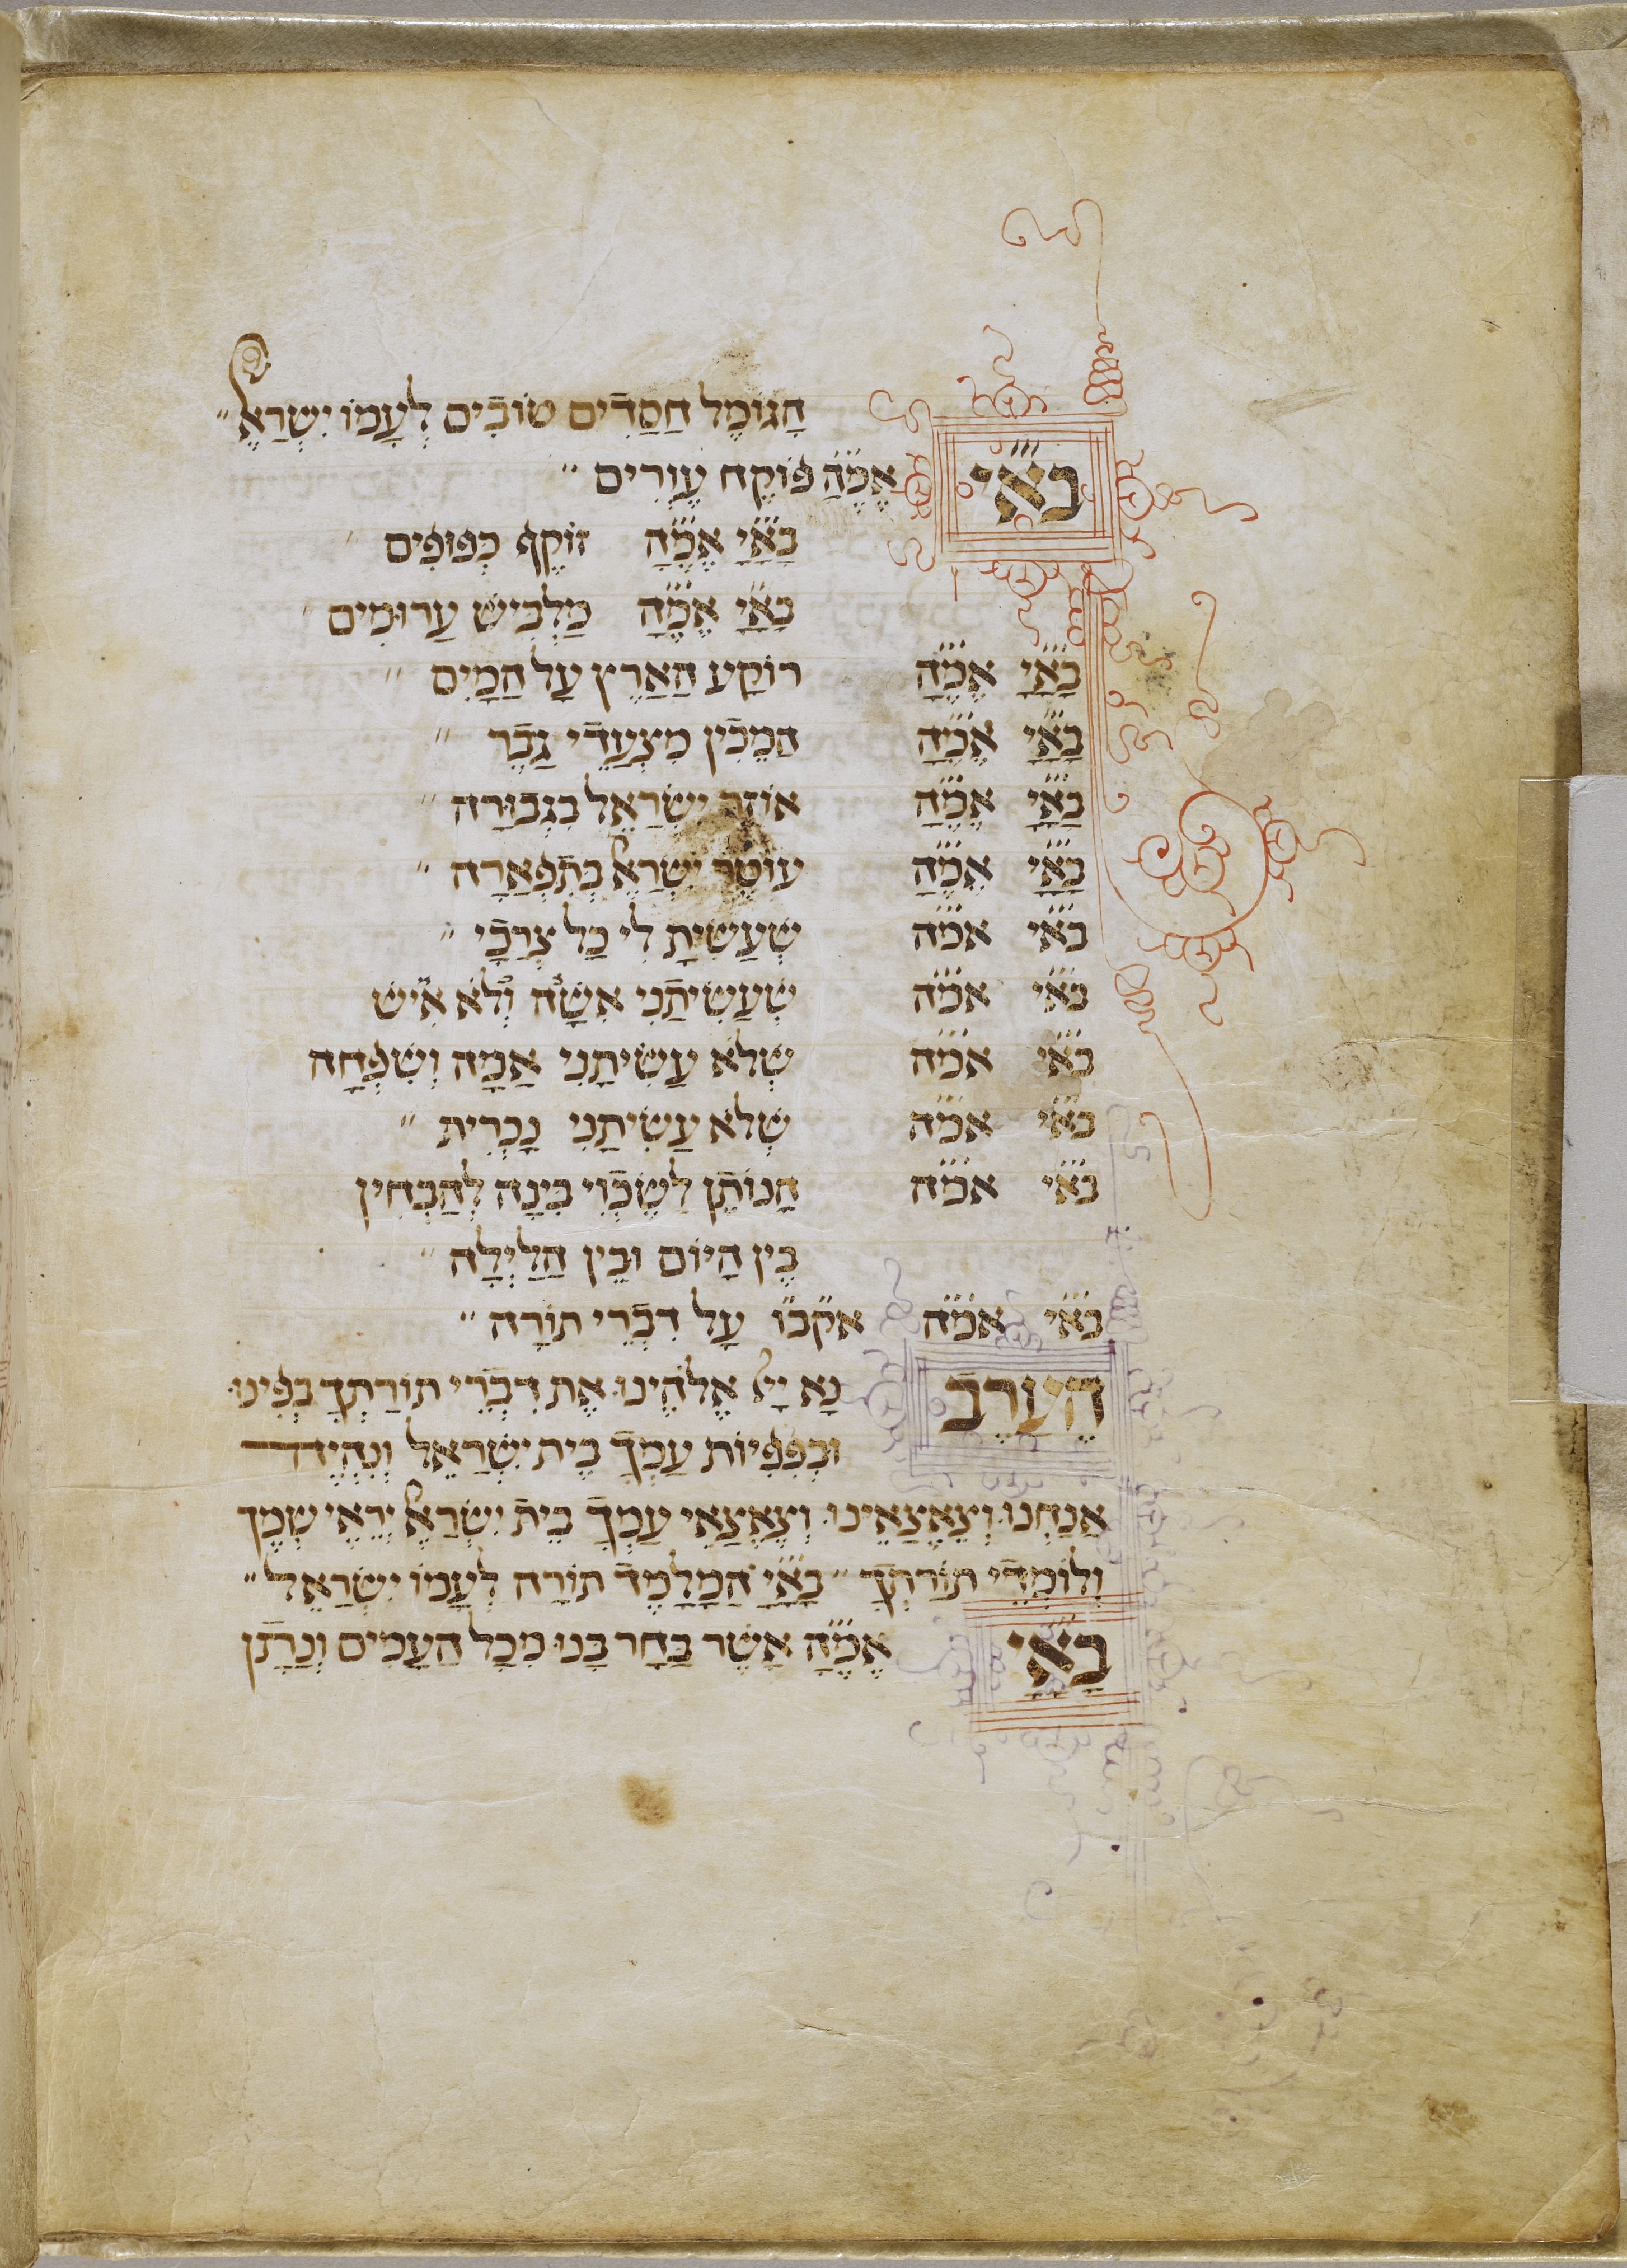 הַגוֹמֶל חַסַדִים טוֹבִים לְעַמוֹ יִשְרַאֶל״
בא״י אֶמֶ״הַ פוֹקֶח עִוְרִים ״
בָאָ״יָ אֶמֶ״הָ זוֹקֶף כְפוּפִים
בָאָ״יָ אֶמֶ״הָ מַלְבִיש עַרוּמִים
בָאָ״יָ אֶמֶ״הָ רוֹקַע הַאַרֶץ עַל הַמַיִם ״
בָאָ״יָ אֶמֶ״הָ הַמֶכִין מִצְעַדֶי גַבֶר ״
בָאָ״יָ אֶמֶ״הָ אוֹזֶר יִשְרַאֶל בִגְבוּרַה ״
בָאָ״יָ אֶמֶ״הָ עוֹטֶר יִשְרַאֶל בְתִפְאַרַה ״
בא״י אמ״ה שְעַשִיתָ לִי כָל צְרַכָי ״
בא״י אמ״ה שְעַשִיתַנִי אִשָה וְלֹא אִיש
בא״י אמ״ה שְלֹא עַשִיתַנִי אַמָה וְשִפְחָה
בא״י אמ״ה שְלֹא עַשִיתַנִי נָכְרִית ״
בא״י אמ״ה הַנוֹתֶן לַשֶכְוִי בִינָה לְהַבְחִין
בֶין הַיוֹם וּבֶין הַלַיְלָה ״
בא״י אמ״ה אקב״ו עַל דִבְרֶי תוֹרָה ״
הַעַרֶב נָא יְיָ אֶלֹהֶינוּ אֶת דִבְרֶי תוֹרַתְךָ בְפִינוּ
וּבְפִפִיוֹת עַמְךָ בֶית יִשְרַאֶל וְנִהְיֶה
אַנַחְנוּ וְצֶאֶצַאֶינוּ וְצֶאֶצַאֶי עַמְךָ בֶית יִשְרַאֶל יְרֶאֶי שְמֶךָ
וְלוֹמְדֶי תוֹרַתְךָ ״ בָאָ״יָ הַמְלַמֶד תוֹרָה לְעַמוֹ יִשְרַאֶל ״
בָאָ״יָ אֶמֶ״הָ אַשֶר בַחַר בָנוּ מִכָל הַעַמִים וְנַתַן